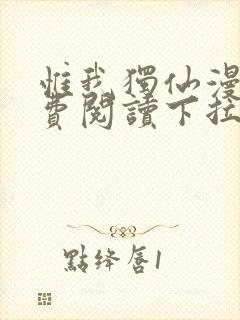 惟我獨仙漫
費閱讀下拉
點絳唇1